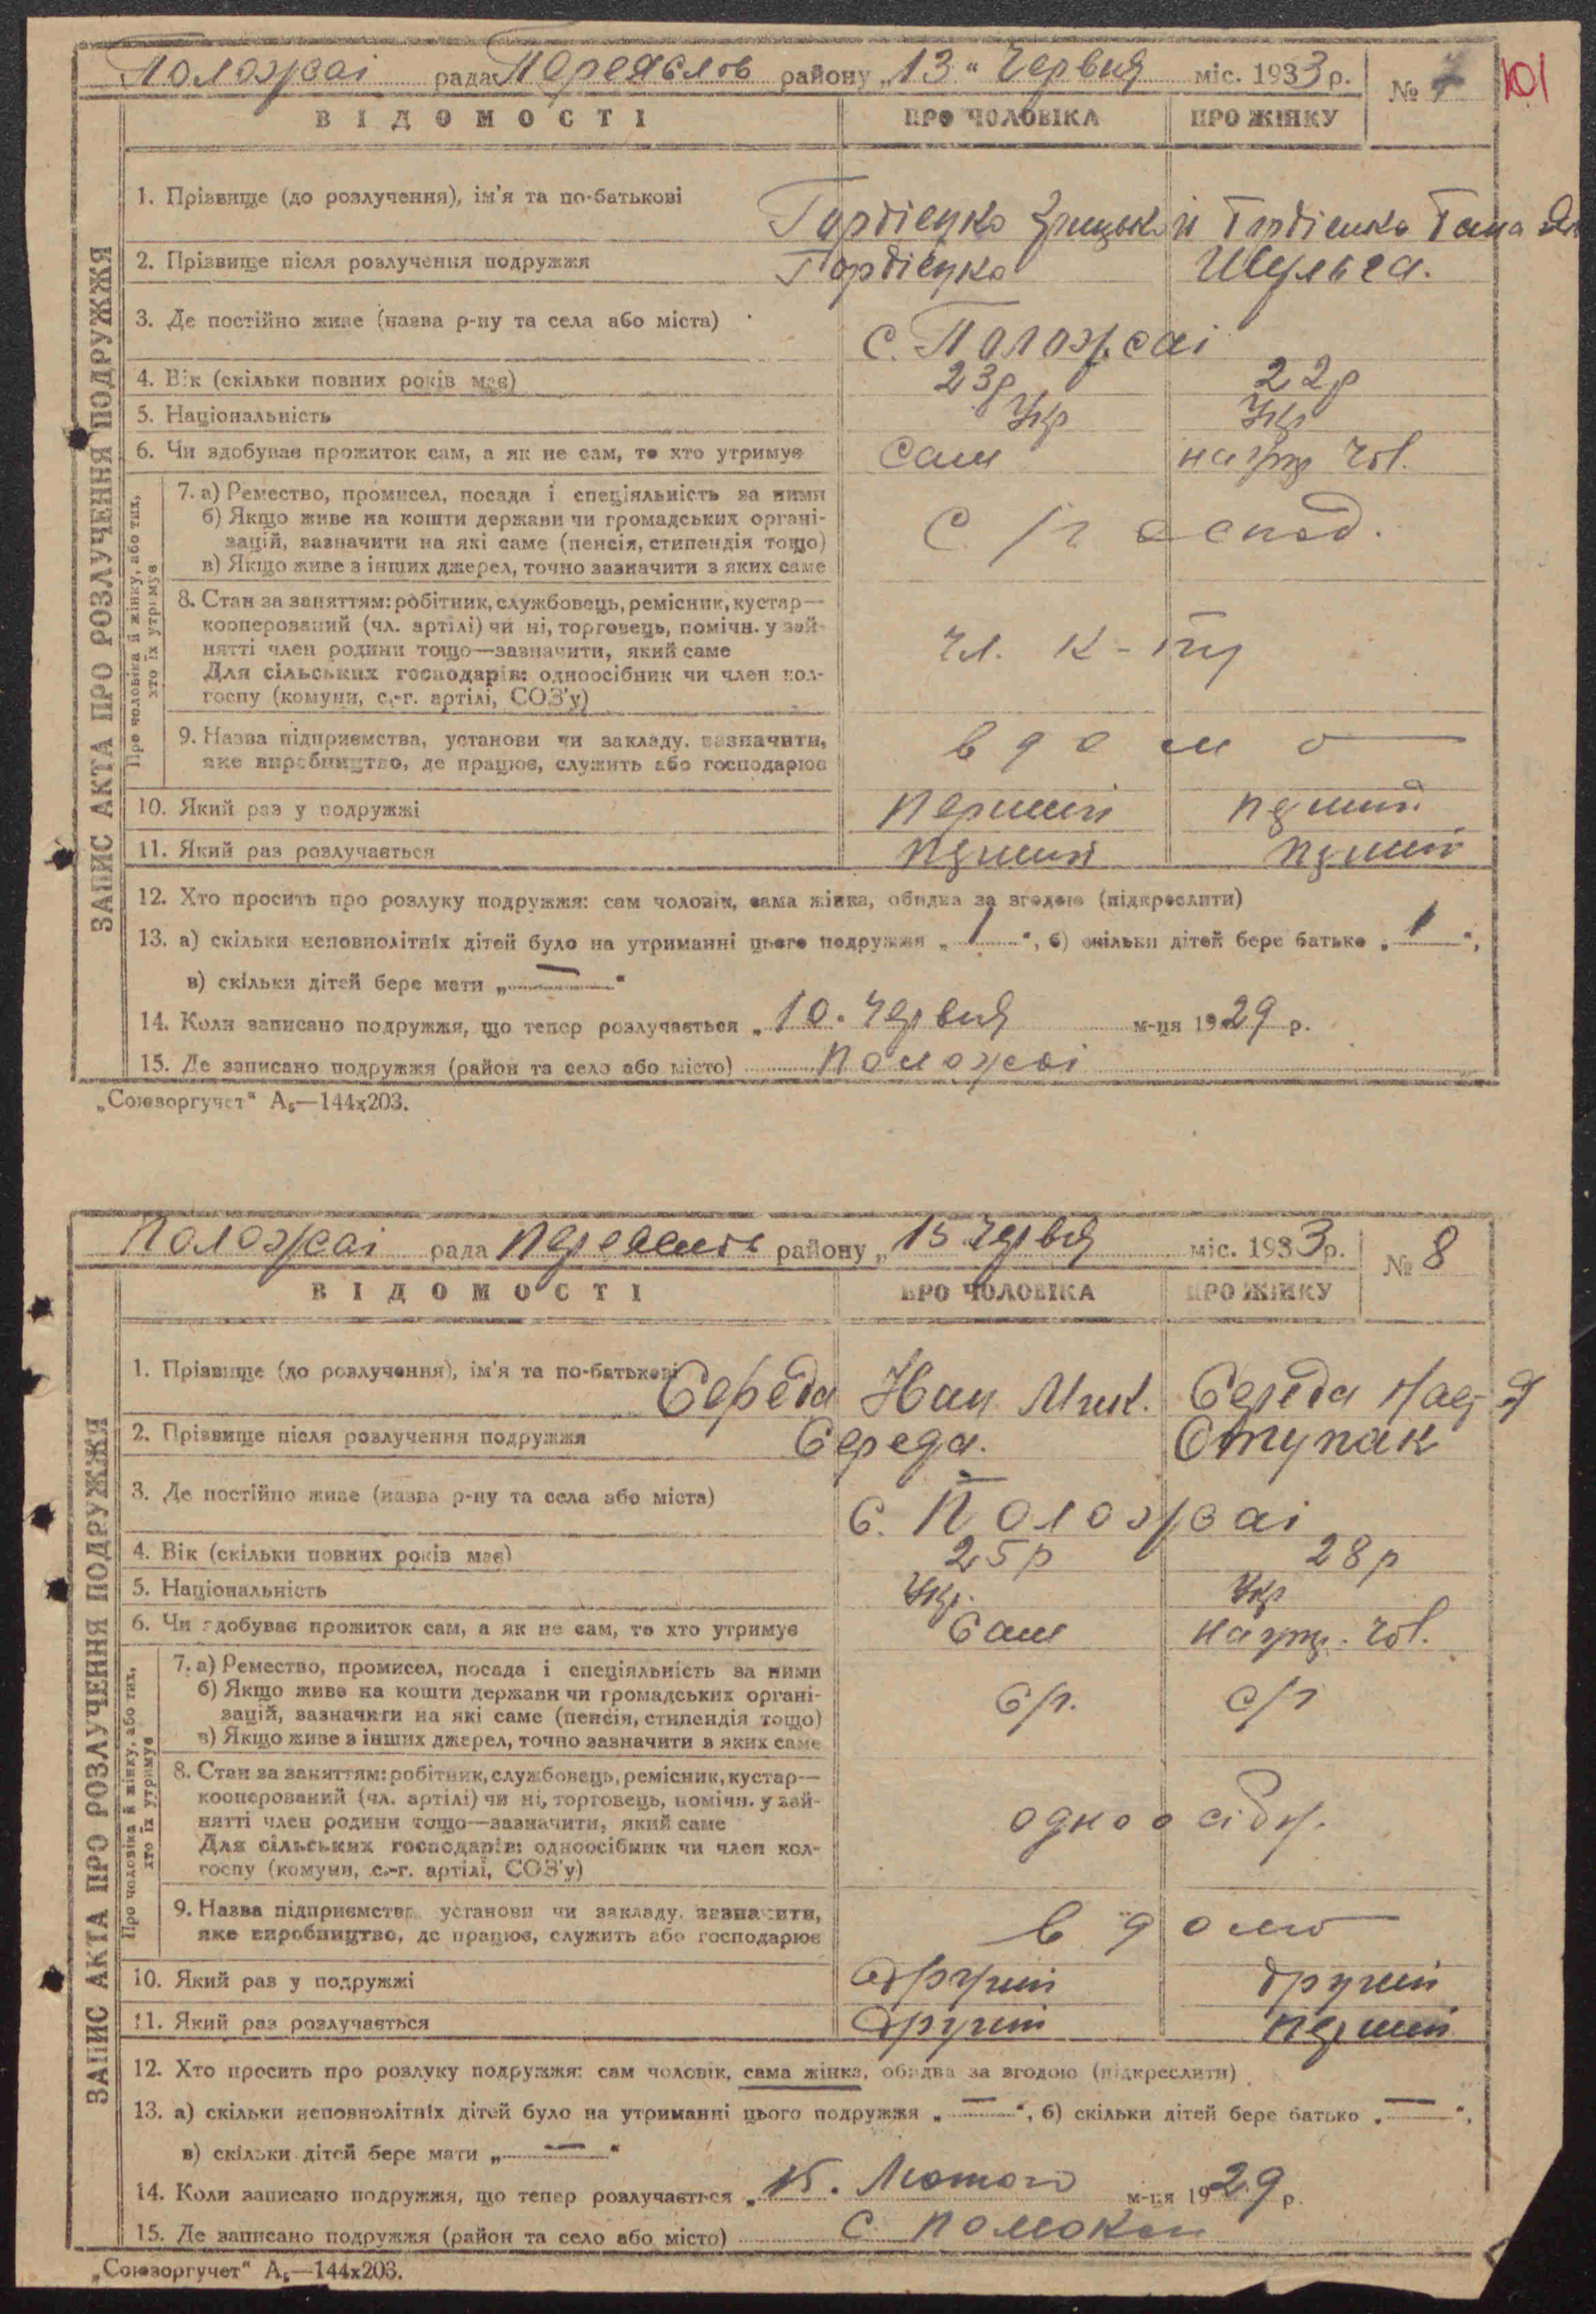 Положаї рада Переяслов району „13“ Червня міс. 1933 р. № 7 101
ВІДОМОСТІ ПРО ЧОЛОВІКА ПРО ЖІНКУ
ЗАПИС АКТА ПРО РОЗЛУЧЕННЯ ПОДРУЖЖЯ
1. Прізвище (до розлучення), ім'я та по-батькові Гордієнко Грицько Гордієнко Ганна
2. Прізвище після розлучення подружжя Гордієнко Шульга.
3. Де постійно живе (назва р-ну та села або міста) с. Положаї
4. Вік (скільки повних років має) 23р 22р
5. Національність Укр Укр
6. Чи здобуває прожиток сам, а як не сам, то хто утримує Сам на утр чол.
Про чоловіка й жінку, або тих,
хто їх утримує
7. а) Ремество, промисел, посада і спеціяльність за ними
б) Якщо живе на кошти держави чи громадських органі-
зацій, зазначити на які саме (пенсія, стипендія тощо) С/господ.
в) Якщо живе з інших джерел, точно зазначити з яких саме
8. Стан за заняттям: робітник, службовець, ремісник, кустар—
кооперований (чл. артілі) чи ні, торговець, помічн. у зай-
нятті член родини тощо—зазначити, який саме чл. к-гу
Для сільських господарів: одноосібник чи член кол-
госпу (комуни, с.-г. артілі, СОЗ'у)
9. Назва підприємства, установи чи закладу, зазначити,
яке виробництво, де працює, служить або господарює вдома
10. Який раз у подружжі перший перший
11. Який раз розлучається перший перший
12. Хто просить про розлуку подружжя: сам чоловік, сама жінка, обидва за згодою (підкреслити)
13. а) скільки неповнолітніх дітей було на утриманні цього подружжя „1“, б) скільки дітей бере батько „1“,
в) скільки дітей бере мати „—“
14. Коли записано подружжя, що тепер розлучається „10. Червня м-ця 1929 р.
15. Де записано подружжя (район та село або місто) Положаї
„Союзоргучет“ А₅—144х203.
Положаї рада Переяслів району „15 Червня міс. 1933 р. № 8
ВІДОМОСТІ ПРО ЧОЛОВІКА ПРО ЖІНКУ
ЗАПИС АКТА ПРО РОЗЛУЧЕННЯ ПОДРУЖЖЯ
1. Прізвище (до розлучення), ім'я та по-батькові Середа Иван Мик. Середа Наст
2. Прізвище після розлучення подружжя Середа. Ступак
3. Де постійно живе (назва р-ну та села або міста) с. Положаї
4. Вік (скільки повних років має) 25р 28р
5. Національність Укр. Укр
6. Чи здобуває прожиток сам, а як не сам, то хто утримує Сам на утр. чол.
Про чоловіка й жінку, або тих,
хто їх утримує
7. а) Ремество, промисел, посада і спеціяльність за ними
б) Якщо живе на кошти держави чи громадських органі-
зацій, зазначити на які саме (пенсія, стипендія тощо) С/г. с/г
в) Якщо живе з інших джерел, точно зазначити з яких саме
8. Стан за заняттям: робітник, службовець, ремісник, кустар—
кооперований (чл. артілі) чи ні, торговець, помічн. у зай-
нятті член родини тощо—зазначити, який саме одноосібн.
Для сільських господарів: одноосібник чи член кол-
госпу (комуни, с.-г. артілі, СОЗ'у)
9. Назва підприємства, установи чи закладу, зазначити,
яке виробництво, де працює, служить або господарює вдома
10. Який раз у подружжі другий другий
11. Який раз розлучається другий перший
12. Хто просить про розлуку подружжя: сам чоловік, сама жінка, обидва за згодою (підкреслити)
13. а) скільки неповнолітніх дітей було на утриманні цього подружжя „—“, б) скільки дітей бере батько „—“,
в) скільки дітей бере мати „—“
14. Коли записано подружжя, що тепер розлучається „15. Лютого м-ця 1929 р.
15. Де записано подружжя (район та село або місто) с.
„Союзоргучет“ А₅—144х203.